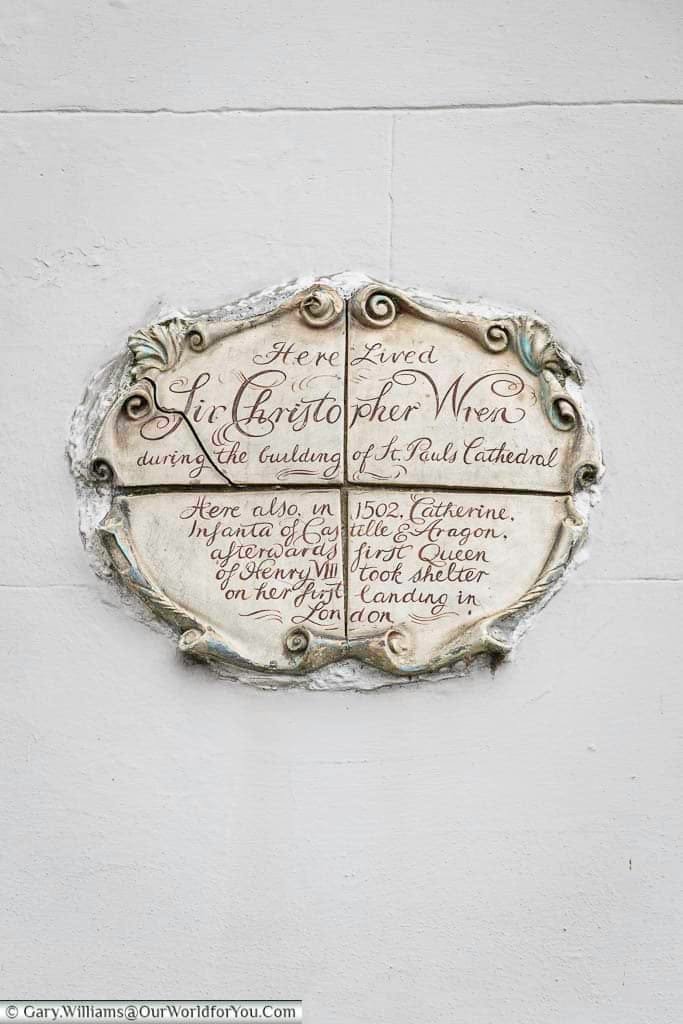 Here Lived
Sir Christopher Wren
during the building of St. Pauls Cathedral
Here also, in 1502, Catherine,
Infanta of Castille & Aragon,
afterwards first Queen
of Henry VIII took shelter
on her first landing in
London.
© Gary.Williams@OurWorldforYou.Com